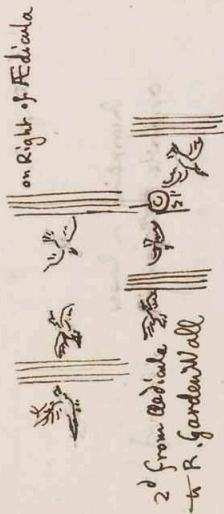 on Right of Ædicula
2d from Ædicula
R. Garden Wall